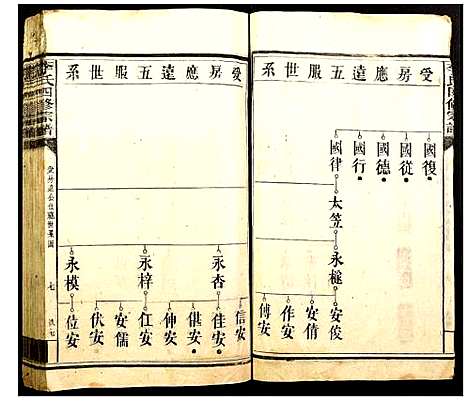 愛房應達五服世系
國復
國從
國德
國行
國律
太笠
永樾
安俊
安倩
作安
傅安
李氏四修宗譜
七
愛房應達五服世系
永杏
永梓
永模
信安
佳安
倛安
伸安
仜安
安儒
伏安
位安
李氏四修宗譜